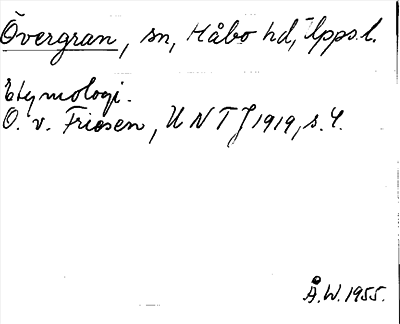 Övergran, sn, Håbo hd, Upps.l.
Etymologi.
O. v. Friesen, UNTJ 1919, s. 4.
Å.W. 1955.